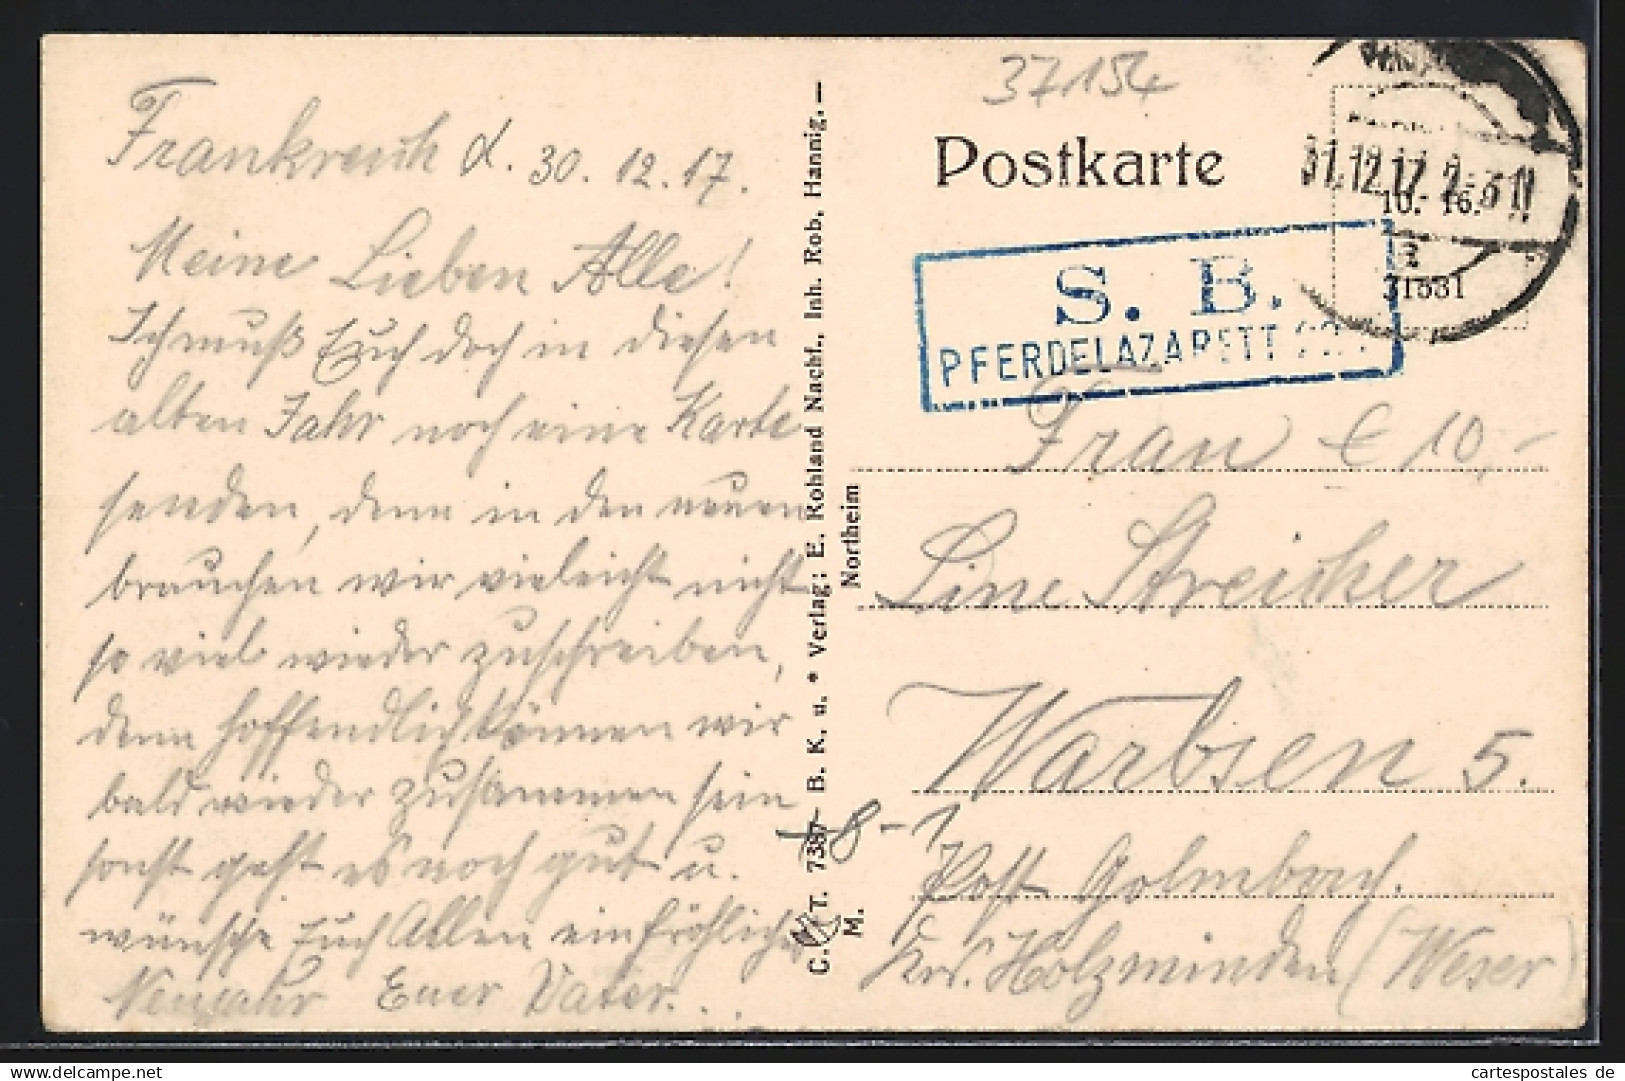 Frankreich d. 30. 12. 17.
Meine Lieben Alle!
Ich muß Euch doch in diesen
alten Jahr noch eine Karte
senden, denn in den neuen
brauchen wir vieleicht nicht
so viel wieder zuschreiben,
denn hoffendlich können wir
bald wieder zusammen sein
sonst geht es noch gut u.
wünsche Euch Allen ein fröhliches
Neujahr Euer Vater.
C. T. 7387 B. K. u. * Verlag: E. Rohland Nachf., Inh. Rob. Hannig, —
Northeim
M.
37154
Postkarte
31.12.17
10. 16.
31531
S. B.
PFERDELAZARETT
Frau € 10,-
Line Streicher
Warbsen 5.
8-1
Post Golmbach.
Krs. Holzminden (Weser)
cartespostales de